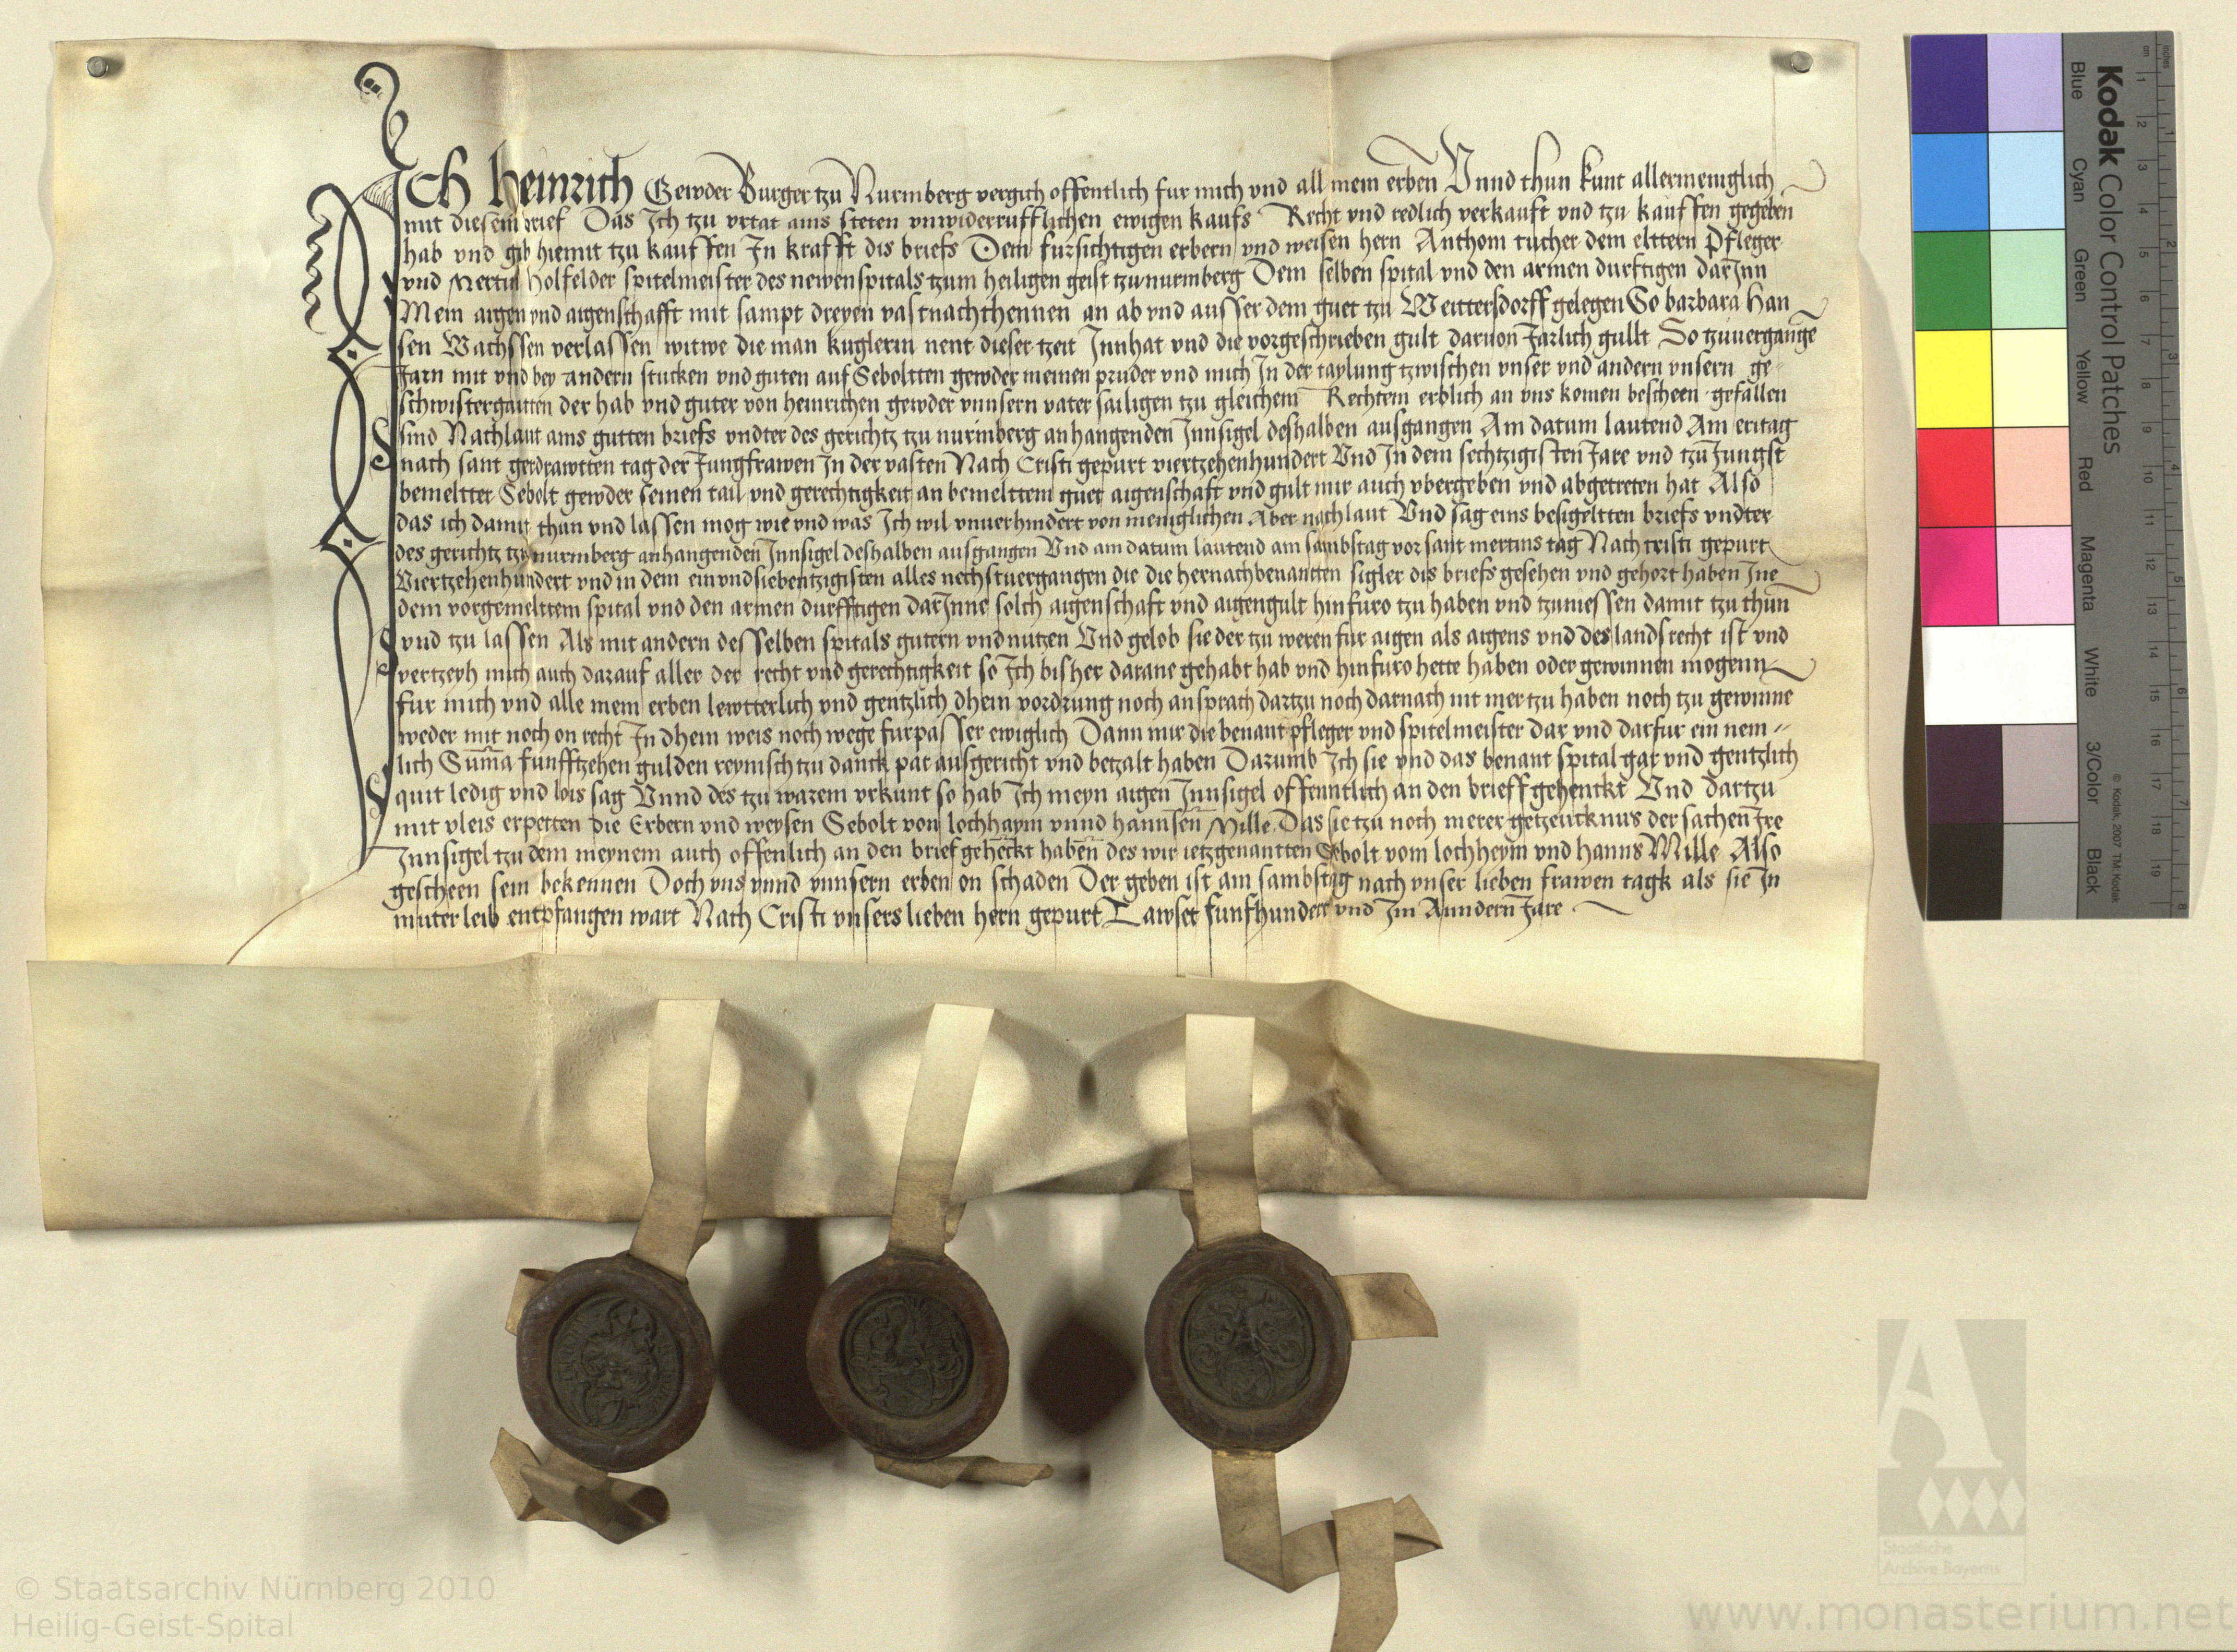 Ich Heinrich Gewder Burger tzu Nurmberg vergich offentlich fur mich vnd all mein erben Vnnd thun kunt allermeniglich
mit diesem brief Das Ich tzu vrtat ains steten vnwiderrufflichen ewigen kaufs Recht vnd redlich verkauft vnd tzu kauffen gegeben
hab vnd gib hiemit tzu kauffen In krafft dis briefs Dem fursichtigen erbern vnd weisen hern Anthoni tucher dem elttern Pfleger
vnd Mertin Holfelder spitelmeister des newen spitals tzum heiligen geist tzu nurmberg Dem selben spital vnd den armen durftigen darInn
Mein aigen vnd aigenschafft mit sampt dreyen vastnachthennen an ab vnd ausser dem guet tzu Weittersdorff gelegen So barbara Han
sen Wachssen verlassen witwe die man kuglerin nent dieser tzeit Innhat vnd die vorgeschrieben gult daruon Jarlich gullt So tzuuergange
Jarn mit vnd bey andern stucken vnd guten auf Seboltten gewder meinen pruder vnd mich In der taylung tzwischen vnser vnd andern vnsern ge
schwistergaitten der hab vnd guter von heinrichen gewder vnnsern vater sailigen tzu gleichem Rechtem erblich an vns komen bescheen gefallen
sind Nachlaut ains gutten briefs vndter des gerichtz tzu nurmberg anhangenden Innsigel deshalben ausgangen Am datum lautend Am eritag
nach sant gerdrawtten tag der Jungfrawen In der vasten Nach Cristi gepurt viertzehenhundert Vnd In dem sechtzigisten Jare vnd tzu Jungst
bemeltter Sebolt gewder seinen tail vnd gerechtigkeit an bemelttem guet aigenschaft vnd gult mir auch vbergeben vnd abgetreten hat Also
das ich damit thun vnd lassen mog wie vnd was Ich wil vnuerhindert von meniglichen Aber nachlaut Vnd sag eins besigeltten briefs vndter
des gerichtz tzu nurmberg anhangenden Innsigel deshalben ausgangen Vnd am datum lautend am sambstag vor sant mertins tag Nach cristi gepurt
Viertzehenhundert vnd in dem einvndsiebentzigisten alles nechstuergangen die die hernachbenantten sigler dis briefs gesehen vnd gehort haben Ine
dem vorgemelttem spital vnd den armen durfftigen darInne solch aigenschaft vnd aigengult hinfuro tzu haben vnd tzuniessen damit tzu thun
vnd tzu lassen Als mit andern desselben spitals gutern vnd nutzen Vnd gelob sie der tzu weren fur aigen als aigens vnd des lands recht ist vnd
vertzeyh mich auch darauf aller der recht vnd gerechtigkeit so Ich bisher darane gehabt hab vnd hinfuro hette haben oder gewinnen mogenn
fur mich vnd alle mein erben lewtterlich vnd gentzlich dhein vordrung noch ansprach dartzu noch darnach nit mer tzu haben noch tzu gewinne
weder mit noch on recht In dhein weis noch wege furpasser ewiglich Dann mir die benant pfleger vnd spitelmeister dar vnd darfur ein nem
lich Suma funfftzehen gulden reynisch tzu danck par ausgericht vnd betzalt haben Darumb Ich sie vnd das benant spital gar vnd gentzlich
quit ledig vnd lois sag Vnnd des tzu warem vrkunt so hab Ich meyn aigen Innsigel offenntlich an den brieff gehenckt Vnd dartzu
mit vleis erpetten die Erbern vnd weysen Sebolt von lochhaym vnnd hannsen Mille Das sie tzu noch merer getzeucknus der sachen Ire
Innsigel tzu dem meynem auch offenlich an den brief geheckt haben des wir ietzgenantten Sebolt vom lochheym vnd hanns Mille Also
gescheen sein bekennen Doch vns vnnd vnnsern erben on schaden Der geben ist am sambstag nach vnser lieben frawen tagk als sie In
muter leib entpfangen wart Nach Cristi vnsers lieben hern gepurt Tawset funfhundert vnd Im Anndern Jare
Kodak Color Control Patches
Blue Cyan Green Yellow Red Magenta White 3/Color Black
© Kodak, 2007 TM: Kodak
cm 1 2 3 4 5 6 7 8 9 10 11 12 13 14 15 16 17 18 19
inches 1 2 3 4 5 6 7 8
Staatliche
Archive Bayerns
© Staatsarchiv Nürnberg 2010
Heilig-Geist-Spital
www.monasterium.net